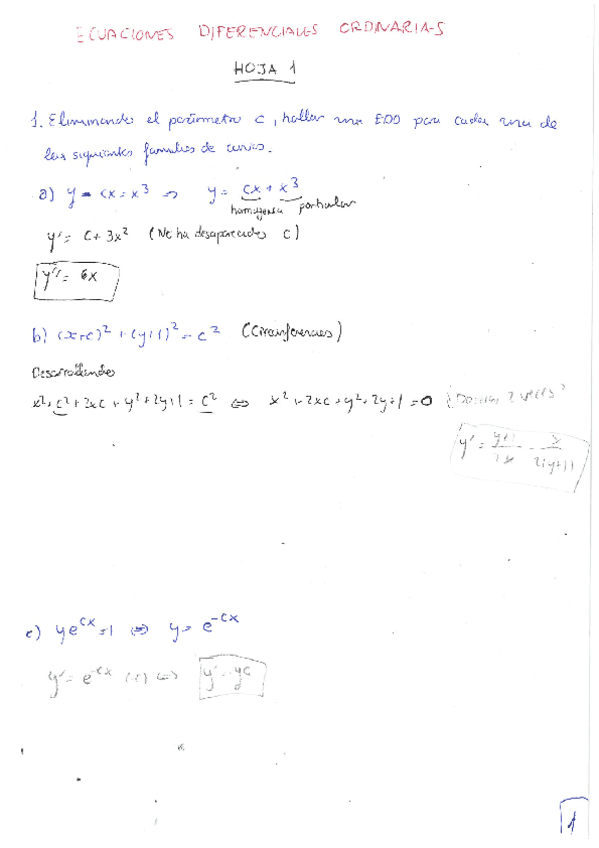 ECUACIONES DIFERENCIALES ORDINARIAS
HOJA 1
1. Eliminando el parámetro c, hallar una EDO para cada una de
las siguientes familias de curvas.
a) y - cx = x³ ⇒ y = cx + x³
homogenea particular
y' = c + 3x² (No ha desaparecido c)
y'' = 6x
b) (x+c)² + (y+1)² = c² (Circunferencias)
Desarrollando
x² + c² + 2xc + y² + 2y + 1 = c² ⇔ x² + 2xc + y² + 2y + 1 = 0 ¿Derivar 2 veces?
y' = y+1/2x - x/2(y+1)
c) ye^{cx} = 1 ⇔ y = e^{-cx}
y' = e^{-cx} (-c) ⇔ y' = -yc
1